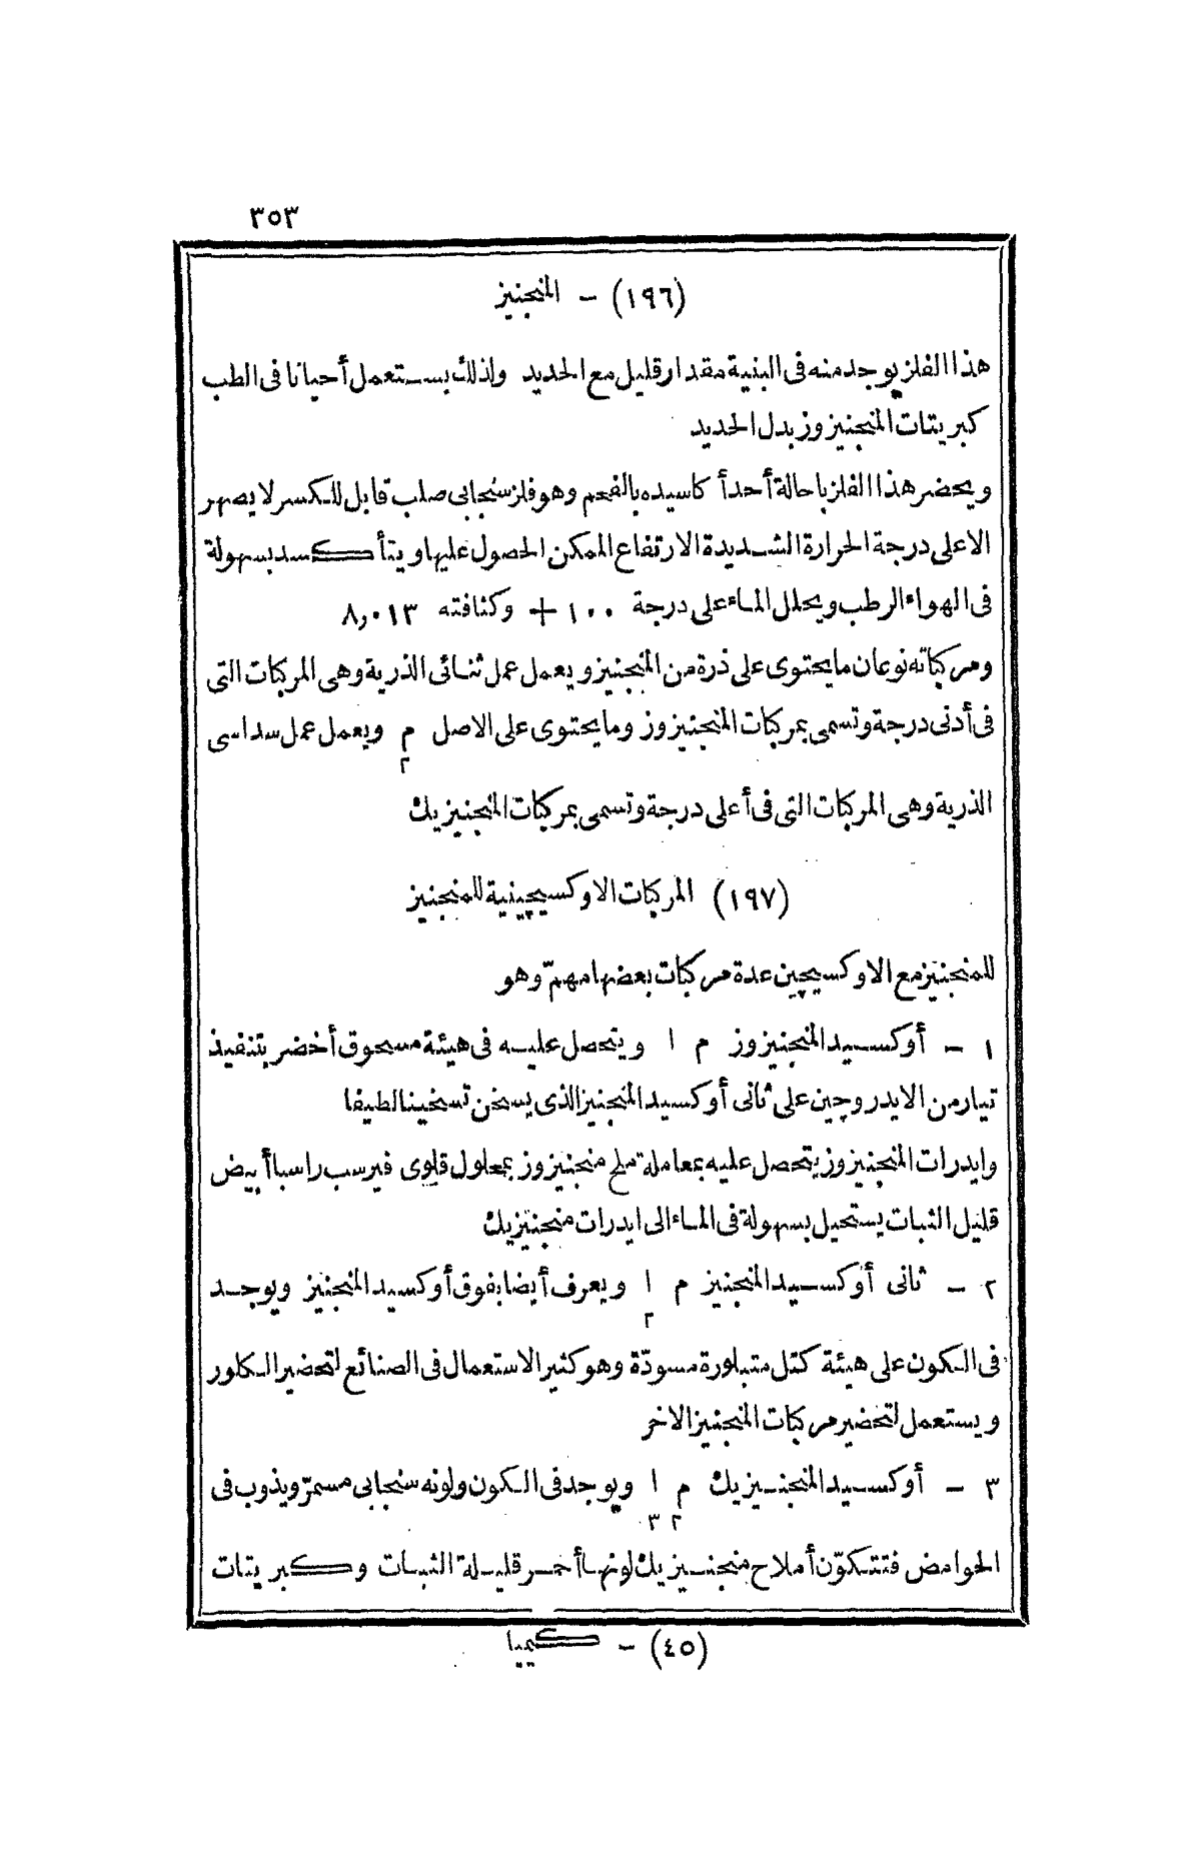 ٣٥٣
(١٩٦) - المنجنيز
هذا الفلز يوجد منه فى البنية مقدار قليل مع الحديد ولذلك يستعمل أحيانا فى الطب
كبريتات المنجنيزوز بدل الحديد
ويحضر هذا الفلز باحالة أحد أكاسيده بالفحم وهو فلز سنجابى صلب قابل للكسر لا يصهر
الا على درجة الحرارة الشديدة الارتفاع الممكن الحصول عليها ويتأكسد بسهولة
فى الهواء الرطب ويحلل الماء على درجة ١٠٠ + وكثافته ٨,٠١٣
ومركباته نوعان ما يحتوى على ذرة من المنجنيز ويعمل عمل ثنائى الذرية وهى المركبات التى
فى أدنى درجة وتسمى بمركبات المنجنيزوز وما يحتوى على الاصل م٢ ويعمل عمل سداسى
الذرية وهى المركبات التى فى أعلى درجة وتسمى بمركبات المنجنيزيك
(١٩٧) المركبات الاوكسيچينية للمنجنيز
للمنجنيز مع الاوكسيچين عدة مركبات بعضها مهمّ وهو
١ - أوكسيد المنجنيزوز م ا ويتحصل عليه فى هيئة مسحوق أخضر بتنفيذ
تيار من الايدروچين على ثانى أوكسيد المنجنيز الذى يسخن تسخينا لطيفا
وايدرات المنجنيزوز يتحصل عليه بمعاملة ملح منجنيزوز بمحلول قلوى فيرسب راسبا أبيض
قليل الثبات يستحيل بسهولة فى الماء الى ايدرات منجنيزيك
٢ - ثانى أوكسيد المنجنيز م ا٢ ويعرف أيضا بفوق أوكسيد المنجنيز ويوجد
فى الكون على هيئة كتل متبلورة مسودّة وهو كثير الاستعمال فى الصنائع لتحضير الكلور
ويستعمل لتحضير مركبات المنجنيز الاخر
٣ - أوكسيد المنجنيزيك م٢ ا٣ ويوجد فى الكون ولونه سنجابى مسمرّ ويذوب فى
الحوامض فتتكوّن أملاح منجنيزيك لونها أحمر قليلة الثبات وكبريتات
(٤٥) - كيميا